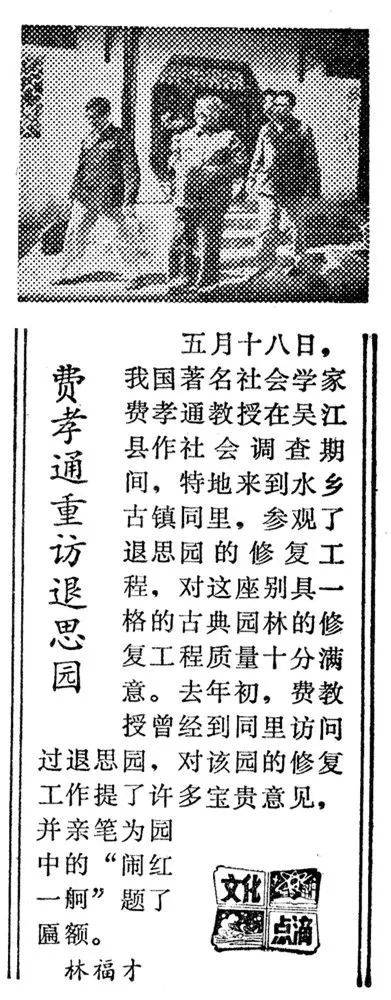 费孝通重访退思园
五月十八日，
我国著名社会学家
费孝通教授在吴江
县作社会调查期
间，特地来到水乡
古镇同里，参观了
退思园的修复工
程，对这座别具一
格的古典园林的修
复工程质量十分满
意。去年初，费教
授曾经到同里访问
过退思园，对该园的修复
工作提了许多宝贵意见，
并亲笔为园
中的“闹红
一舸”题了
匾额。
林福才
文化
点滴